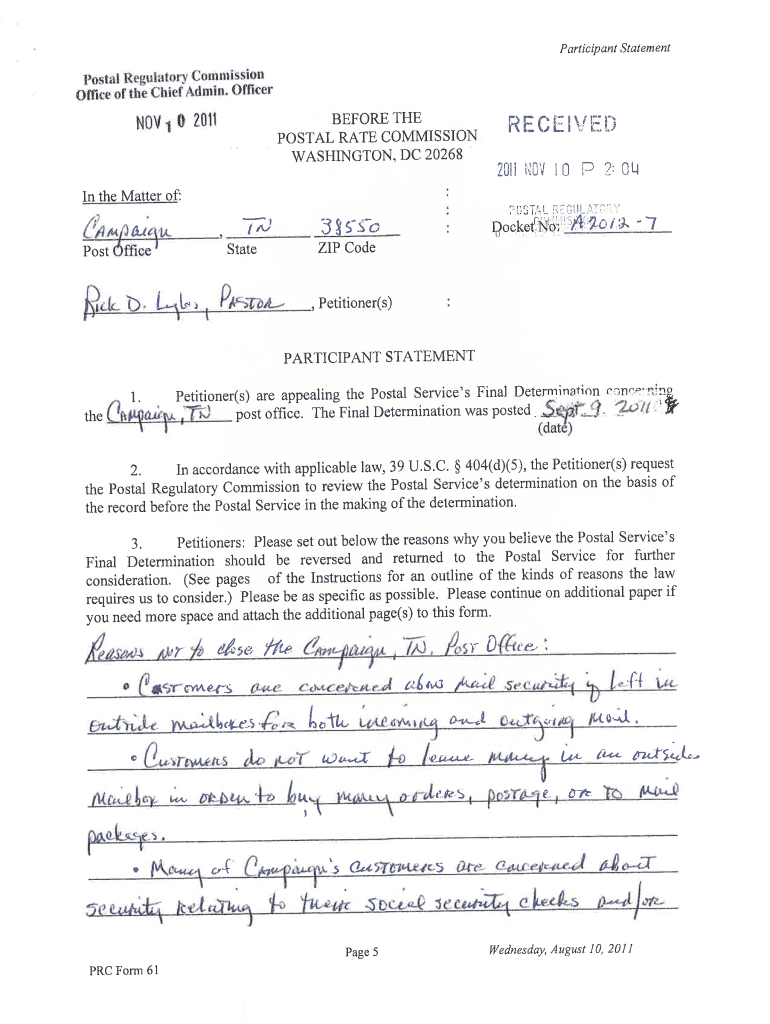 Participant Statement
Postal Regulatory Commission
Office of the Chief Admin. Officer
NOV 10 2011
BEFORE THE
POSTAL RATE COMMISSION
WASHINGTON, DC 20268
RECEIVED
2011 NOV 10 P 2:04
POSTAL REGULATORY
In the Matter of:
Campaign, TN 38550
Docket No: A2012-7
Post Office State ZIP Code
Rick D. Lyles, Pastor, Petitioner(s) :
PARTICIPANT STATEMENT
1. Petitioner(s) are appealing the Postal Service's Final Determination concerning
the Campaign, TN post office. The Final Determination was posted Sept. 9. 2011
(date)
2. In accordance with applicable law, 39 U.S.C. § 404(d)(5), the Petitioner(s) request
the Postal Regulatory Commission to review the Postal Service's determination on the basis of
the record before the Postal Service in the making of the determination.
3. Petitioners: Please set out below the reasons why you believe the Postal Service's
Final Determination should be reversed and returned to the Postal Service for further
consideration. (See pages of the Instructions for an outline of the kinds of reasons the law
requires us to consider.) Please be as specific as possible. Please continue on additional paper if
you need more space and attach the additional page(s) to this form.
Reasons not to close the Campaign, TN. Post Office:
• Customers are concerened about mail security if left in
outside mailboxes for both incoming and outgoing mail.
• Customers do not want to leave money in an outside
mailbox in order to buy money orders, postage, or to mail
packages.
• Many of Campaign's customers are concerened about
security relating to their social security checks and/or
Page 5
Wednesday, August 10, 2011
PRC Form 61